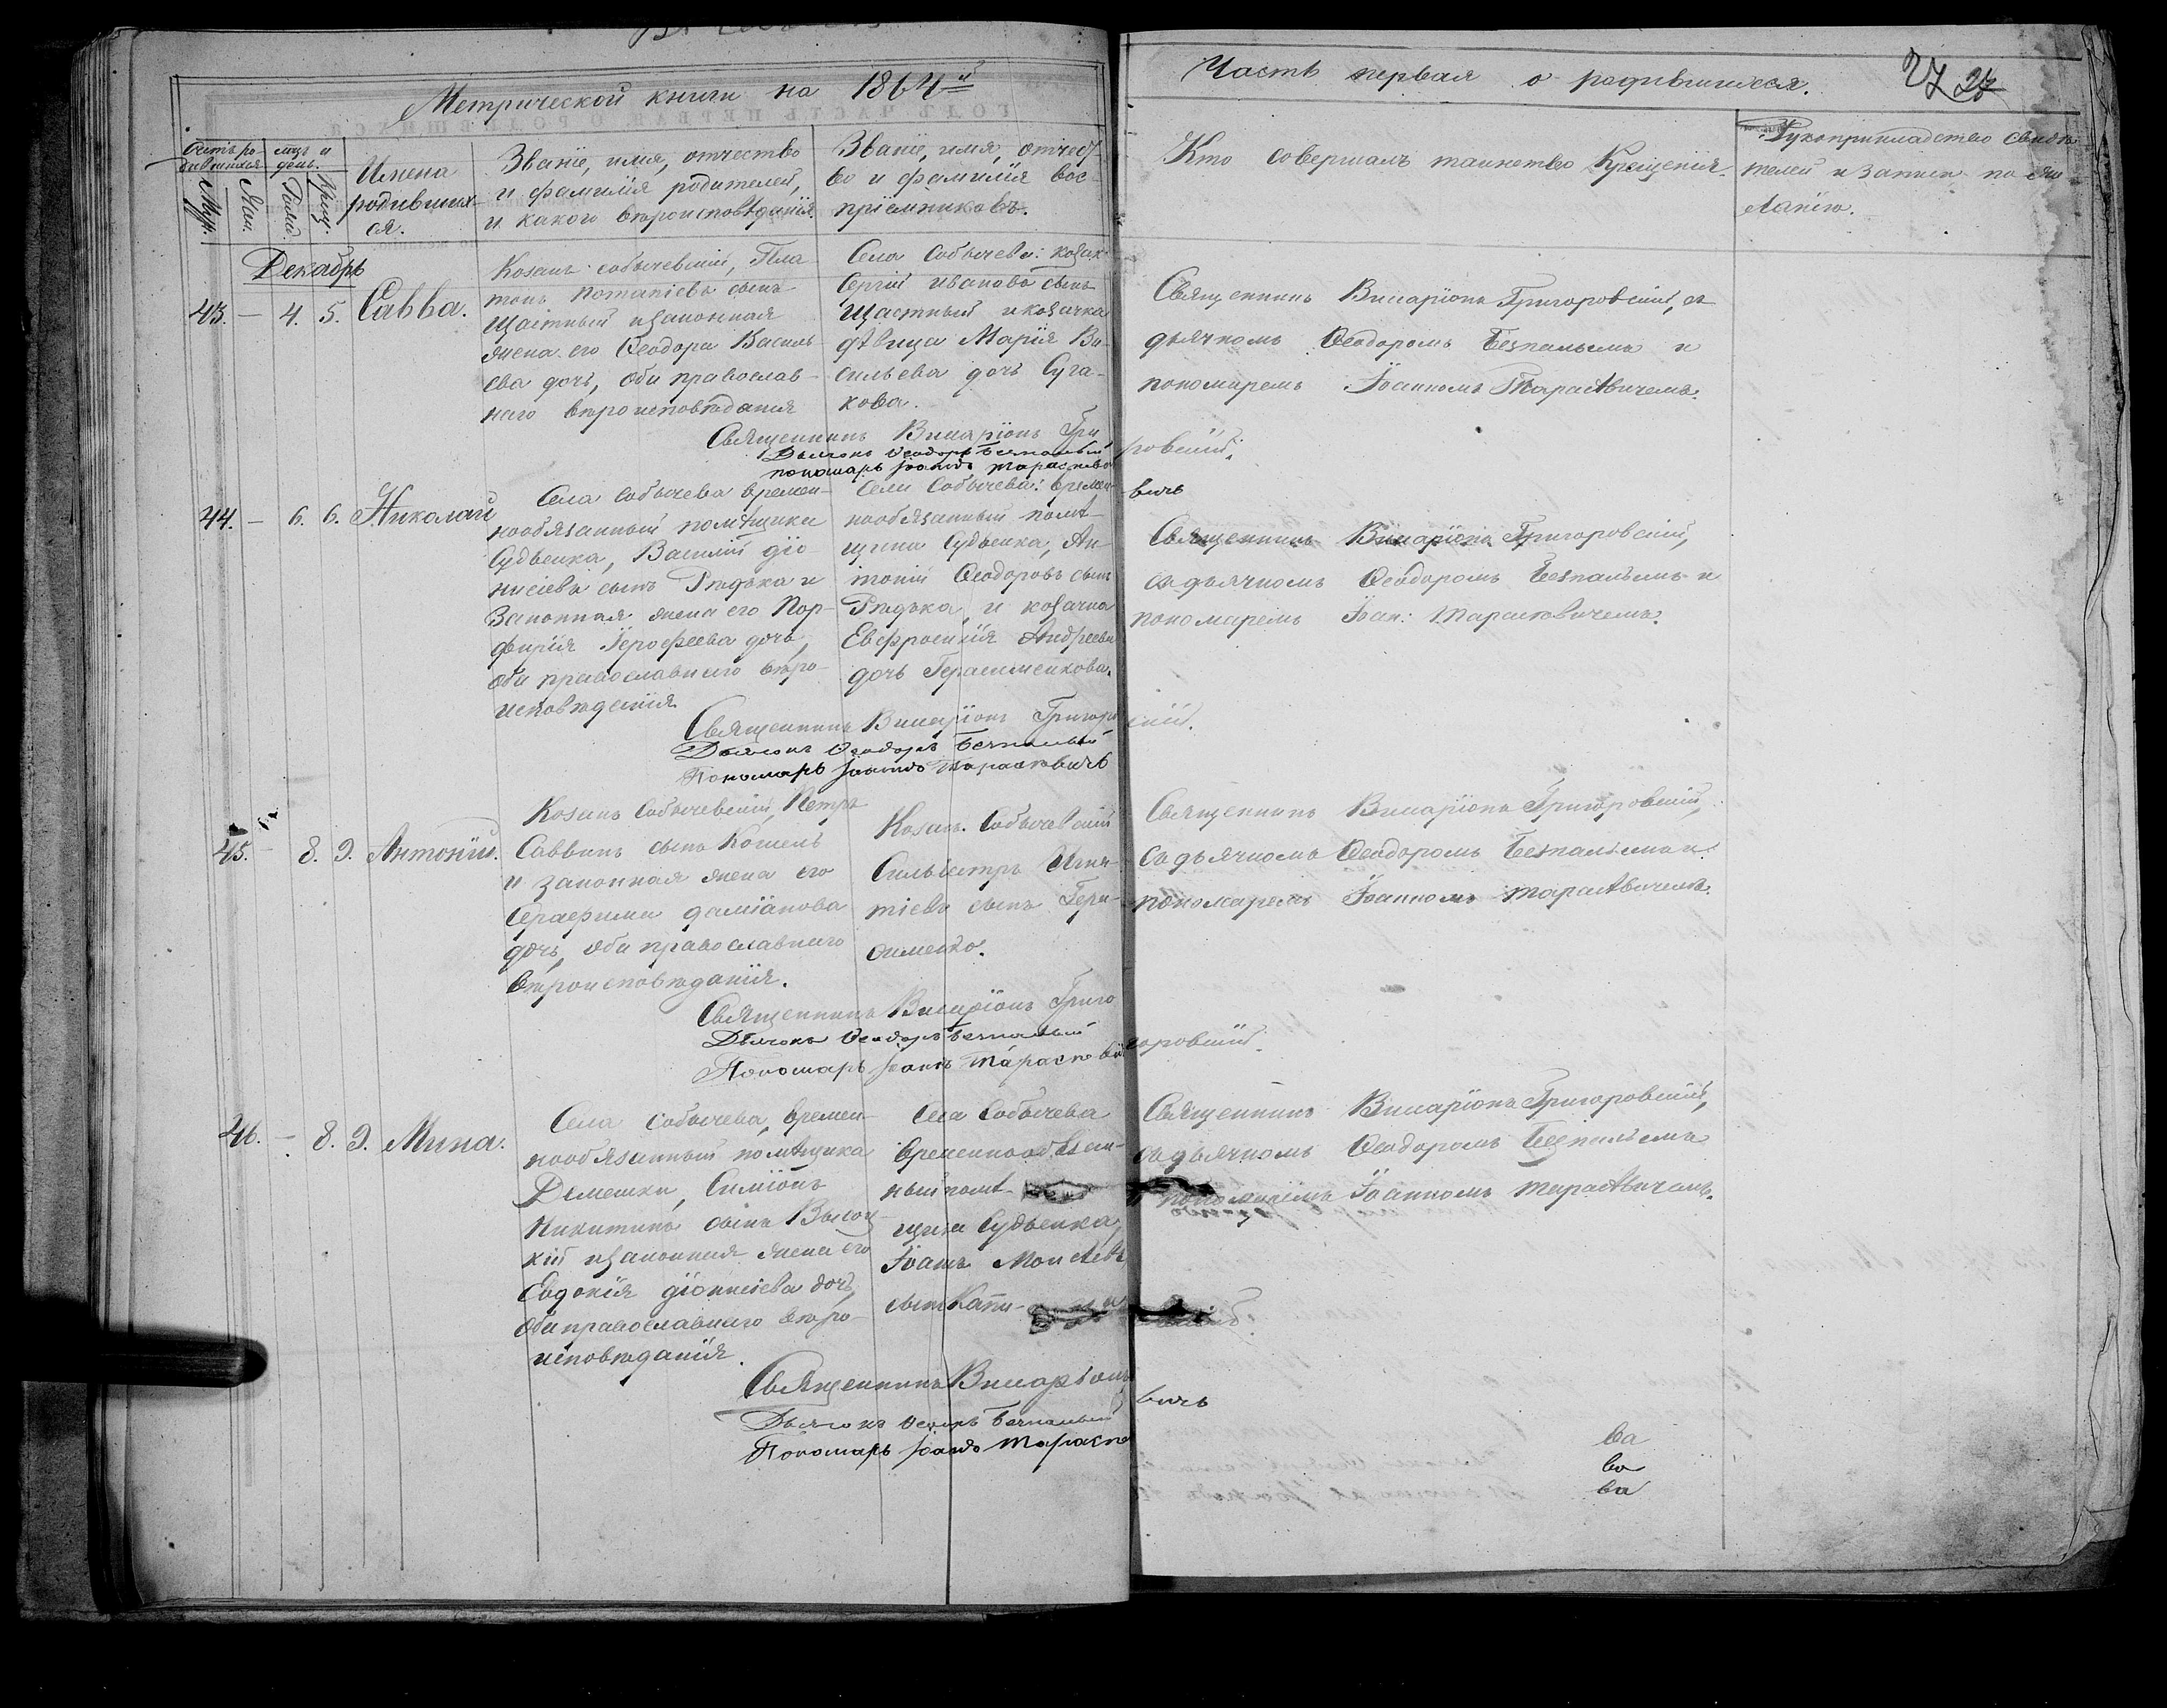 Метрической книги на 1864й
Часть первая о родившихся.
27
Счетъ ро-
дившихся
Муж.
Жен.
мцъ и
день.
Рожд.
Крещ.
Имена
родивших-
ся.
Званіе, имя, отчество
и фамилія родителей,
и какого вѣроисповѣданія.
Званіе, имя, отчест-
во и фамилія вос-
пріемниковъ.
Кто совершалъ таинство Крещенія.
Рукоприкладство свидѣ-
телей и записи по же
ланію.
Декабрь
43. — 4. 5. Савва.
Козакъ собычевскій, Пла-
тонъ Потапіевъ сынъ
Щастный и законная
жена его Ѳеодора Василь-
ева дочь, оба православ-
наго вѣроисповѣданія
Села Собычева: козакъ
Сергій Ивановъ сынъ
Щастный и козачка
дѣвица Марія Ва-
сильева дочь Суга-
кова.
Священникъ Виссаріонъ Григоровскій, съ
дьячкомъ Ѳеодоромъ Безпалымъ и
пономаремъ Іоанномъ Тарасѣвичемъ.
Священникъ Виссаріонъ Гри
ровскій.
Дьячокъ Ѳеодоръ Безпалый
пономарь Іоаннъ Тарасѣво
вичъ
44. — 6. 6. Николай
Села Собычева времен-
нообязанный помѣщика
Судьенка, Василій Діо-
нисіевъ сынъ Рѣдька и
Законная жена его Пор-
фирія Іерофеева дочь,
оба православнаго вѣро-
исповѣданія.
Села Собычева: времен-
нообязанный помѣ-
щика Судьенка, Ан-
тоній Ѳеодоровъ сынъ
Рѣдька, и козачка
Евфросинія Андреева
дочь Герасименкова.
Священникъ Виссаріонъ Григоровскій,
съ дьячкомъ Ѳеодоромъ Безпалымъ и
пономаремъ Іоан: Тарасѣвичемъ.
Священникъ Виссаріонъ Григоро
скій.
Дьячокъ Ѳеодоръ Безпалый
Пономарь Іоаннъ Тарасѣвичъ
45. — 8. 9. Антоній.
Козакъ Собычевскій, Петръ
Саввинъ сынъ Кошель
и законная жена его
Серафима Даміанова
дочь, оба православнаго
вѣроисповѣданія.
Козакъ Собычевскій
Сильвестръ Игна-
тіевъ сынъ Гера-
сименко.
Священникъ Виссаріонъ Григоровскій,
съ дьячкомъ Ѳеодоромъ Безпалымъ и
пономаремъ Іоанномъ Тарасѣвичемъ.
Священникъ Виссаріонъ Григо
ровскій.
Дьячокъ Ѳеодоръ Безпалый
Пономарь Іоаннъ Тарасѣви
46. — 8. 9. Мина.
Села Собычева, времен-
нообязанный помѣщика
Демешки, Симіонъ
Никитинъ сынъ Высоц-
кій и законная жена его
Евдокія Діонисіева дочь,
оба православнаго вѣро-
исповѣданія.
Села Собычева
временнообязан-
ный помѣ-
щика Судьенка,
Іоаннъ Моисѣевъ
сынъ
Священникъ Виссаріонъ Григоровскій,
съ дьячкомъ Ѳеодоромъ Безпалымъ
и пономаремъ Іоанномъ Тарасѣвичемъ.
Священникъ Виссаріонъ
Дьячокъ Ѳеодоръ Безпалый
Пономарь Іоаннъ Тарасѣ
вичъ
ва
ва
ва